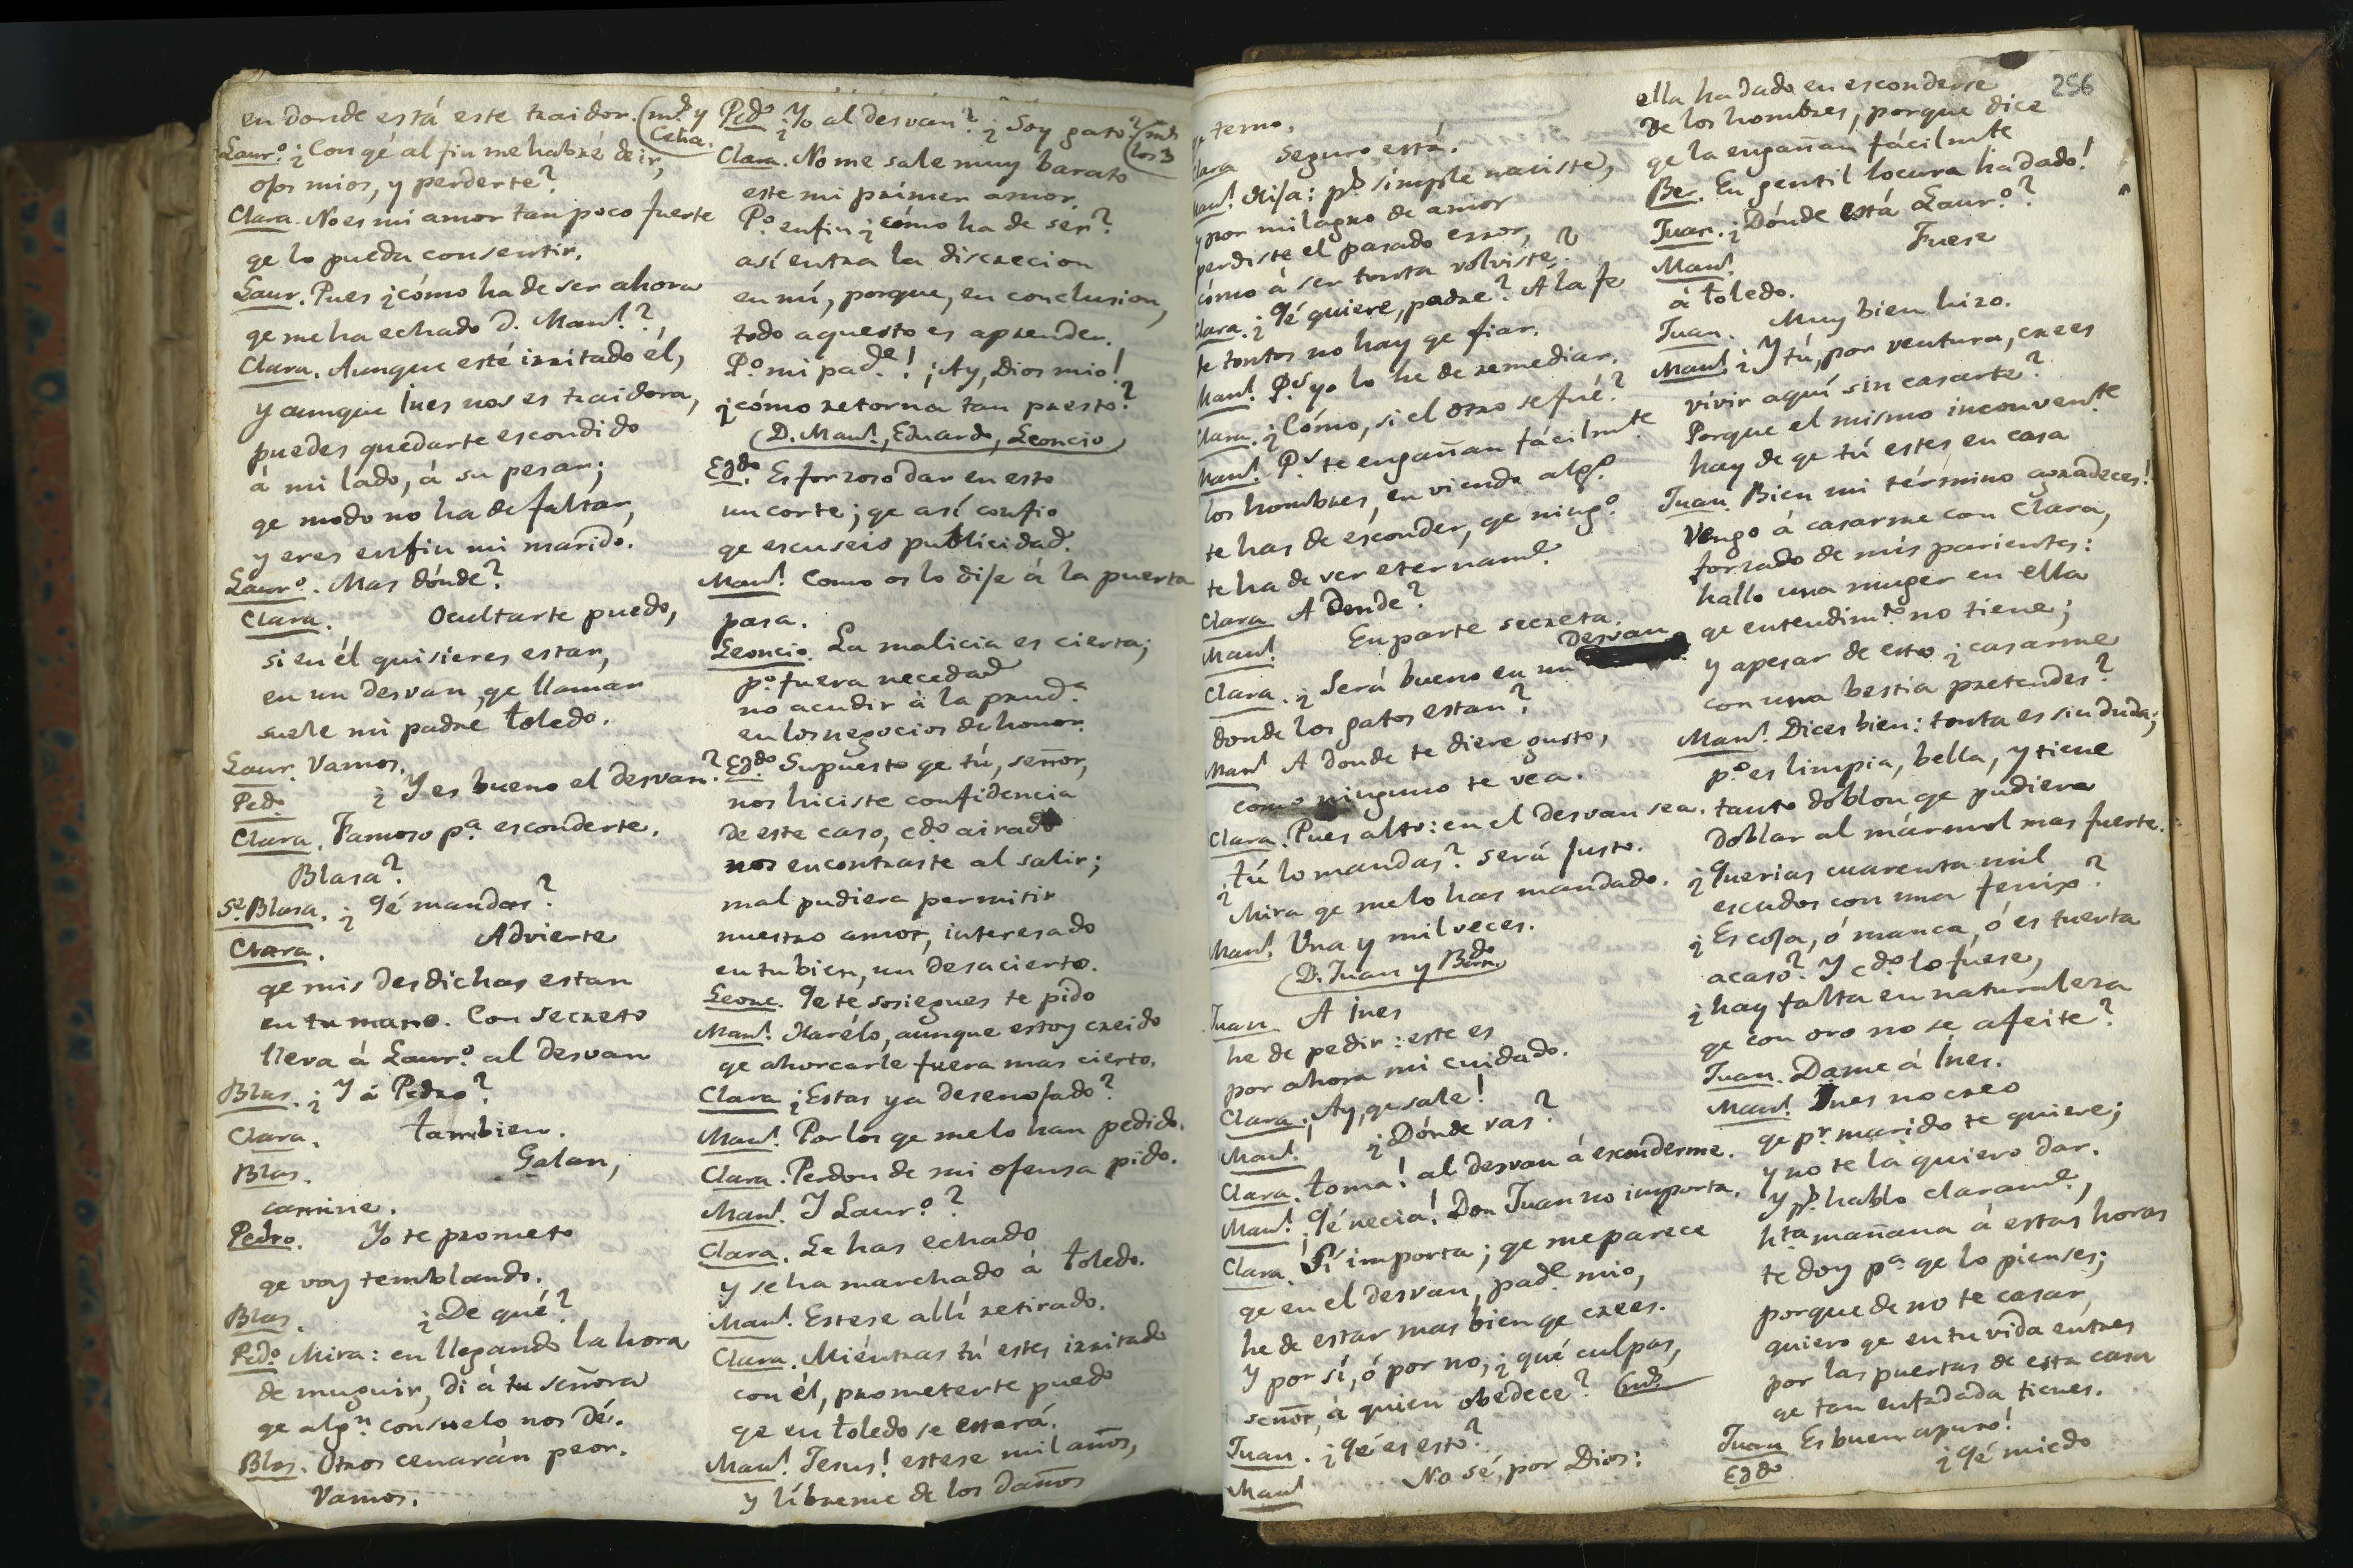 en donde está este traidor. (md. y
Celia.
Laur.º ¿Con qé al fin me habré de ir,
ojos mios, y perderte?
Clara. No es mi amor tan poco fuerte
qe lo pueda consentir.
Laur. Pues ¿cómo ha de ser ahora
qe me ha echado D. Manl.?
Clara. Aunque esté irritado él,
y aunque Ines nos es traidora,
puedes quedarte escondido
á mi lado, á su pesar;
qe modo no ha de faltar,
y eres enfin mi marido.
Laur.º Mas dónde?
Clara. Ocultarte puedo,
si en él quisieres estar,
en un desvan, qe llamar
suele mi padre toledo.
Laur. Vamos.
Pedº. ¿Y es bueno el desvan?
Clara. Famoso pª. esconderte.
Blasa?
Sº. Blasa. ¿Qé mandas?
Clara. Advierte
qe mis desdichas estan
en tu mano. Con secreto
lleva á Laur.º al desvan
Blas. ¿Y á Pedro?
Clara. tambien.
Blas. Galan,
camine.
Pedro. Yo te prometo
qe voy temblando.
Blas. ¿De qué?
Pedº. Mira: en llegando la hora
de muguir, di á tu señora
qe algn. consuelo nos dé.
Blas. Otros cenarán peor.
Vamos.
Pedº ¿Yo al desvan? ¿Soy gato? (mds
los 3
Clara. No me sale muy barato
este mi primer amor.
Pº. enfin ¿cómo ha de ser?
así entra la discrecion
en mí, porque, en conclusion,
todo aquesto es aprender.
Pº. mi pade.! ¡Ay, Dios mio!
¿cómo retorna tan presto?
(D. Manl., Eduardo, Leoncio)
Eddo. Es forzoso dar en esto
un corte; qe así confio
qe escuseis publicidad.
Manl. Como os lo dije á la puerta
pasa.
Leoncio. La malicia es cierta;
pº. fuera necedad
no acudir á la prudª.
en los negocios de honor.
Eddo. Supuesto qe tú, señor,
nos hiciste confidencia
de este caso, cdo. airado
nos encontraste al salir;
mal pudiera permitir
nuestro amor, interesado
en tu bien, un desacierto.
Leonc. Qe te sosiegues te pido
Manl. Harélo, aunque estoy creido
qe ahorcarle fuera mas cierto.
Clara ¿Estas ya desenojado?
Manl. Por los qe me lo han pedido.
Clara. Perdon de mi ofensa pido.
Manl. Y Laur.º?
Clara. Le has echado
y se ha marchado á toledo.
Manl. Estese allí retirado.
Clara. Miéntras tú estes irritado
con él, prometerte puedo
qe en toledo se estará.
Manl. Jesus! estese mil años,
y líbreme de los daños
256
terno.
Clara Seguro está.
Manl. Hija: pr. simple naciste,
y por milagro de amor
perdiste el pasado error,
cómo á ser tonta volviste?
Clara. ¿Qé quiere, padre? A la fe
de tontos no hay qe fiar.
Manl. Ps. yo lo he de remediar.
Clara. ¿Cómo, si el otro se fué?
Manl. Ps. te engañan fácilmte
los hombres, en viendo algº.
te has de esconder, qe ningº.
te ha de ver etername.
Clara A donde?
Manl. En parte secreta.
Clara. ¿Será bueno en un desvan
donde los gatos estan?
Manl A donde te diere gusto,
como ninguno te vea.
Clara. Pues alto: en el desvan sea.
¿tú lo mandas? será justo.
Mira qe me lo has mandado.
Manl. Una y mil veces.
(D. Juan y Berndo.
Juan A Ines
he de pedir: este es
por ahora mi cuidado.
Clara ¡Ay, qe sale!
Manl. ¿Dónde vas?
Clara. toma! al desvan á esconderme.
Manl. ¡Qé necia! Don Juan no importa.
Clara. Sí importa; qe me parece
qe en el desvan, pade. mio,
he de estar mas bien qe crees.
Y por sí, ó por no, ¿qué culpas,
señor, á quien obedece? (md.
Juan. ¿Qé es esto?
Manl No sé, por Dios:
ella ha dado en esconderse
de los hombres, porque dice
qe la engañan fácilmte
Ber. En gentil locura ha dado!
Juan. ¿Dónde está Laur.º?
Manl. Fuese
á toledo.
Juan. Muy bien hizo.
Manl. ¿Y tú, por ventura, crees
vivir aquí sin casarte?
Porque el mismo inconvente
hay de qe tú estes en casa
Juan Bien mi término agradeces!
Vengo á casarme con Clara,
forzado de mis parientes:
hallo una muger en ella
qe entendimto. no tiene;
y apesar de esto ¿casarme
con una bestia pretendes?
Manl. Dices bien: tonta es sin duda;
pº. es limpia, bella, y tiene
tanto doblon qe pudiera
doblar al mármol mas fuerte.
¿Querias cuarenta mil
escudos con una fenix?
¿Es coja, ó manca, ó es tuerta
acaso? Y cdo. lo fuese,
¿hay falta en naturaleza
qe con oro no se afeite?
Juan. Dame á Ines.
Manl. Ines no creo
qe pr. marido te quiere;
y no te la quiero dar.
Y pr. hablo clarame.,
hta. mañana á estas horas
te doy pª. qe lo pienses;
porque de no te casar,
quiero qe en tu vida entres
por las puertas de esta casa
qe tan enfadada tienes.
Juan Es buen apuro!
Eddo ¿Qé miedo